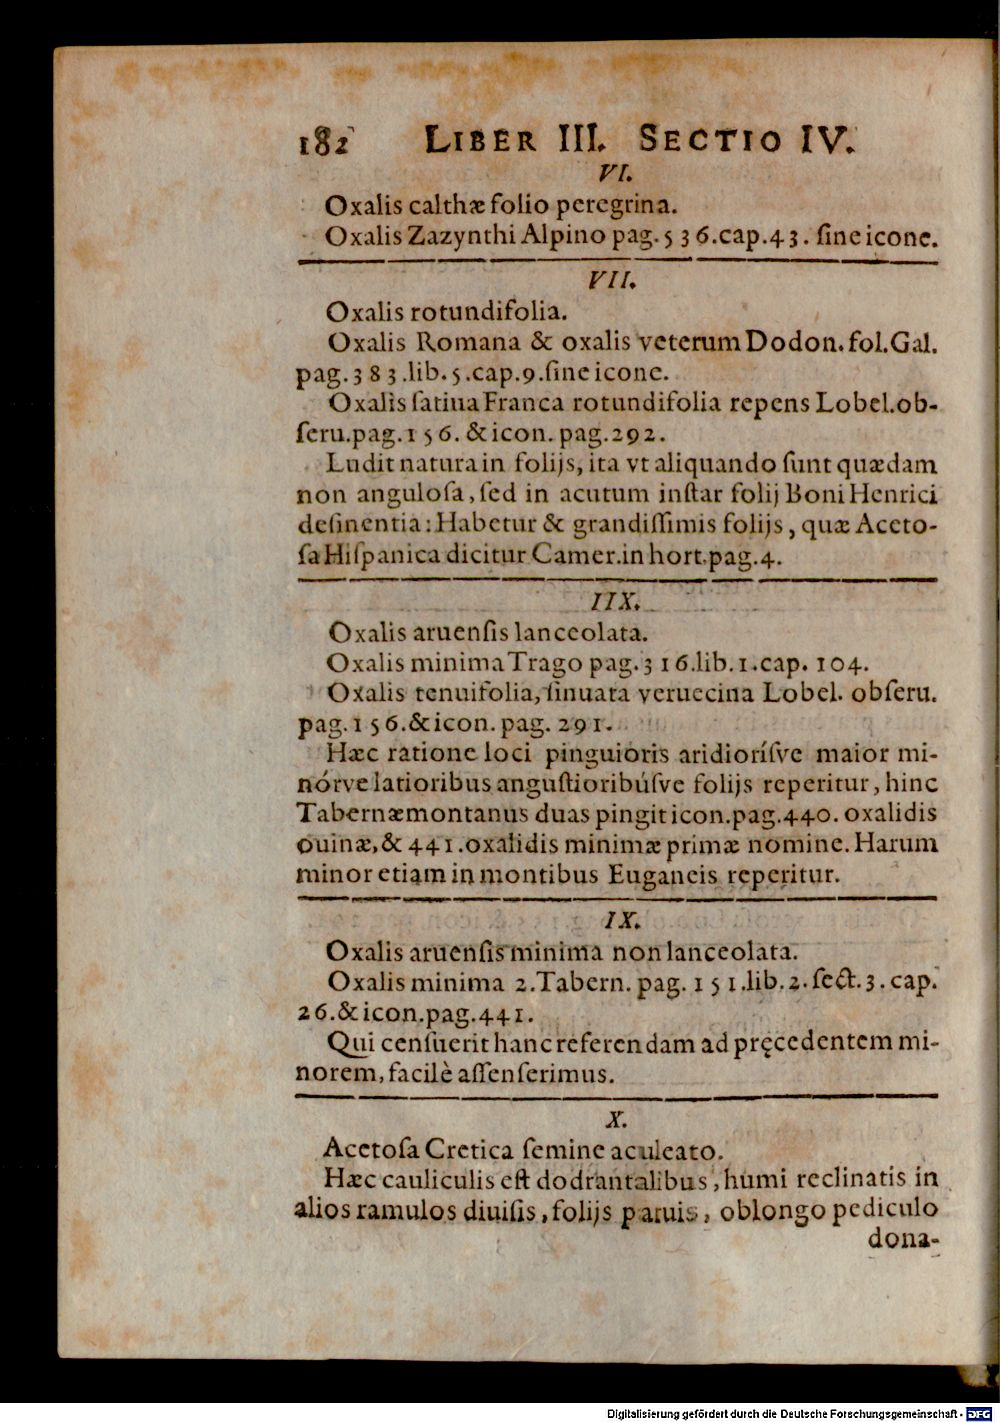 182 LIBER III. SECTIO IV.
VI.
Oxalis calthæ folio peregrina.
Oxalis Zazynthi Alpino pag. 536. cap. 43. ſine icone.
VII.
Oxalis rotundifolia.
Oxalis Romana & oxalis veterum Dodon. fol. Gal.
pag. 383. lib. 5. cap. 9. ſine icone.
Oxalis ſatiua Franca rotundifolia repens Lobel. ob-
ſeru. pag. 156. & icon. pag. 292.
Ludit natura in folijs, ita vt aliquando ſunt quædam
non anguloſa, ſed in acutum inſtar folij Boni Henrici
deſinentia: Habetur & grandiſſimis folijs, quæ Aceto-
ſa Hiſpanica dicitur Camer. in hort. pag. 4.
IIX.
Oxalis aruenſis lanceolata.
Oxalis minima Trago pag. 316. lib. 1. cap. 104.
Oxalis tenuifolia, ſinuata veruecina Lobel. obſeru.
pag. 156. & icon. pag. 291.
Hæc ratione loci pinguioris aridioríſve maior mi-
nórve latioribus anguſtioribúſve folijs reperitur, hinc
Tabernæmontanus duas pingit icon. pag. 440. oxalidis
ouinæ, & 441. oxalidis minimæ primæ nomine. Harum
minor etiam in montibus Euganeis reperitur.
IX.
Oxalis aruenſis minima non lanceolata.
Oxalis minima 2. Tabern. pag. 151. lib. 2. ſect. 3. cap.
26. & icon. pag. 441.
Qui cenſuerit hanc referendam ad pręcedentem mi-
norem, facilè aſſenſerimus.
X.
Acetoſa Cretica ſemine aculeato.
Hæc cauliculis eſt dodrantalibus, humi reclinatis in
alios ramulos diuiſis, folijs paruis, oblongo pediculo
dona-
Digitalisierung gefördert durch die Deutsche Forschungsgemeinschaft - DFG